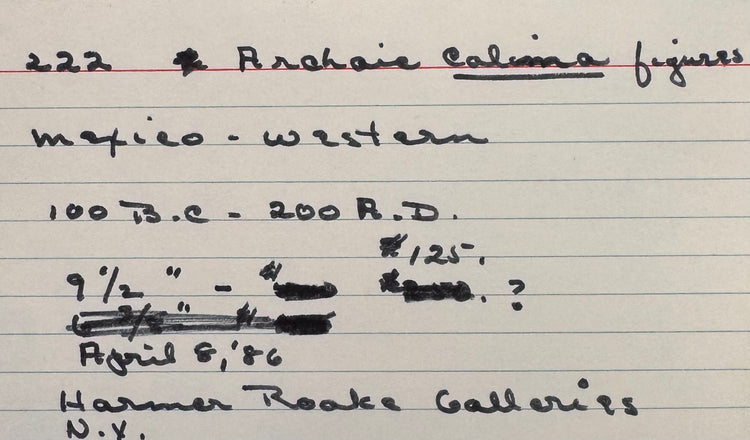 222 Archaic Colima figures
Mexico - Western
100 B.C - 200 A.D.
$125.
9 1/2 " - $ ?
April 8, '86
Harmer Rooke Galleries
N.Y.